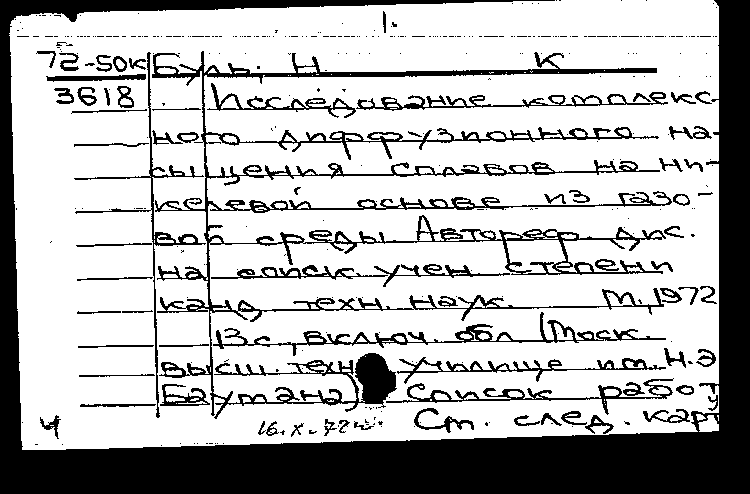 1.
72-50к Буль, Н К
3618 Исследование комплекс-
ного диффузионного на-
сыщения сплавов на ни-
келевой основе из газо-
вой среды Автореф. дис.
на соиск. учен степени
канд техн. наук. М., 1972
13 с., включ. обл (Моск.
высш. техн училище им. Н. Э
Баумана) Список работ
Ч 16.X.72 Ст. след. карт